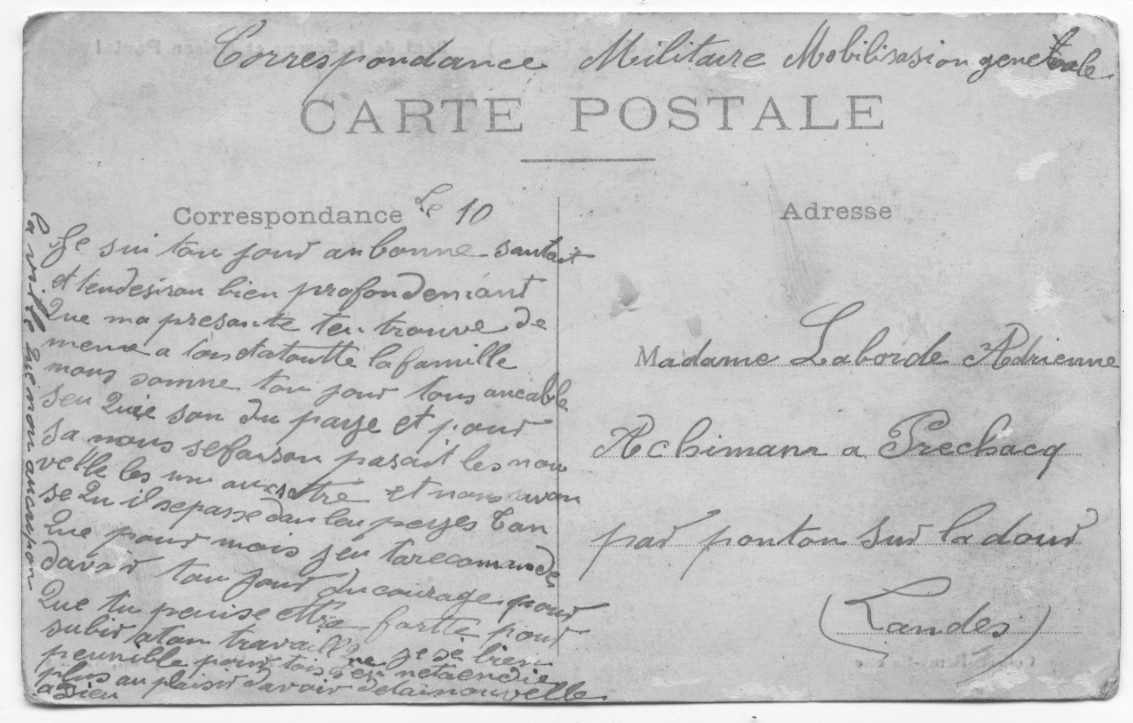 Correspondance Militaire Mobilisasion generale
CARTE POSTALE
Correspondance Le 10
Je sui tou jour an bonne santait
et tendesiran bien profondemant
Que ma presante ten trouve de
meme a tois etatoutte la famille
nous somme tou jour tous ancable
seu Quie son du paye et pour
sa nous sefaison pasait les nou
velle les un au settre et nous savon
se Qu il sepasse dan leu peyzes tan
Que pour mois jeu tarecommande
davoir tou jour du courage pour
Que tu peuise ettre fortte pour
subir aton travaille je se bien
peunible pour tois jeu netandie
plus au plaisir davoir detainouvelle
adieu
la ville Que nou ancupon
Adresse
Madame Laborde Adrienne
Achimann a Prechacq
par ponton sur ladour
(Landes)